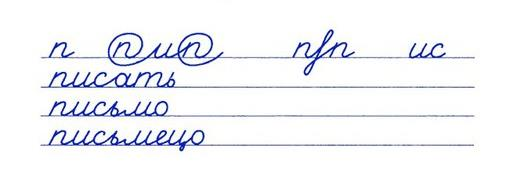 п п и п ис
писать
письмо
письмецо